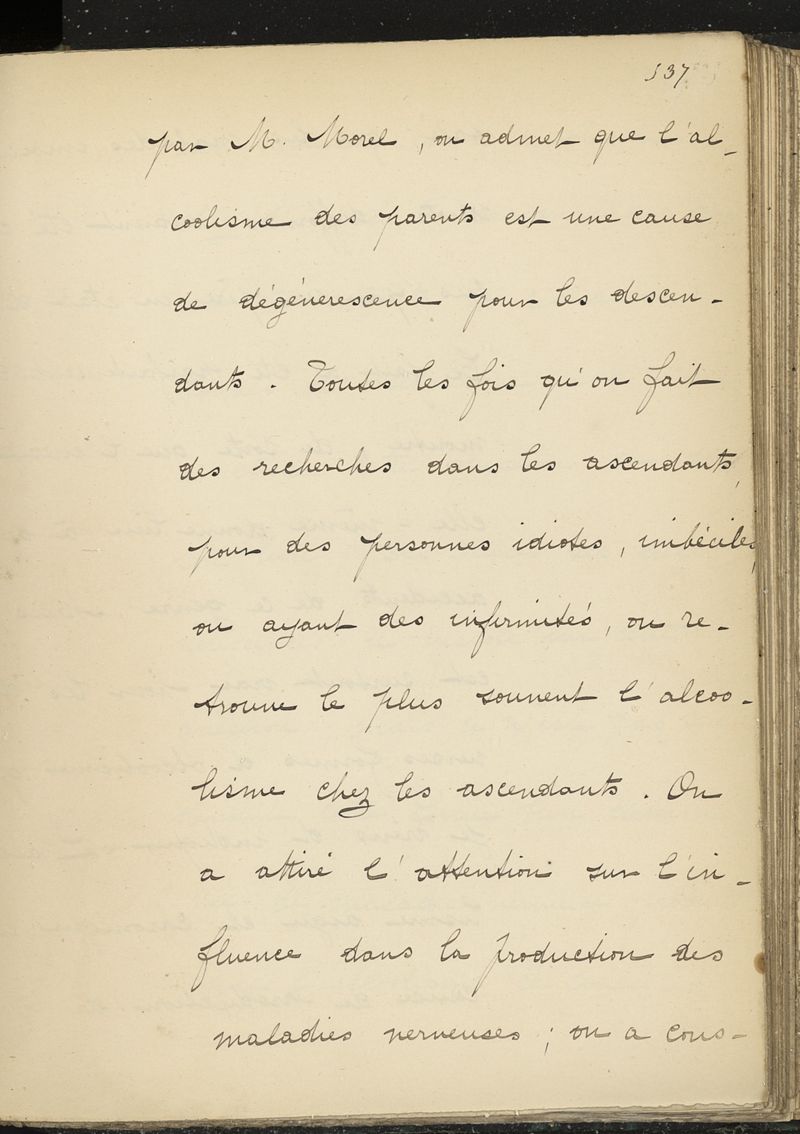 537
par M. Morel, on admet que l'al-
coolisme des parents est une cause
de dégénerescence pour les descen-
dants. Toutes les fois qu'on fait
des recherches dans les ascendants,
pour des personnes idiotes, imbéciles,
ou ayant des infirmités, on re-
trouve le plus souvent l'alcoo-
lisme chez les ascendants. On
a attiré l'attention sur l'in-
fluence dans la production des
maladies nerveuses; on a cons-